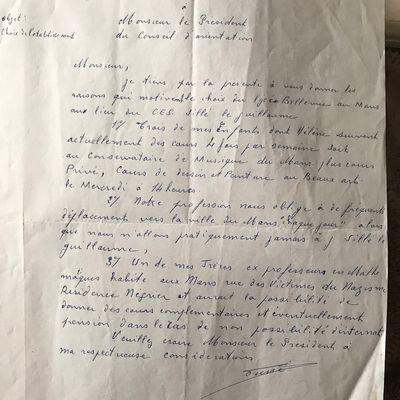 à
Objet:
Choix de l'établissement
Monsieur le President
du Conseil d'orientation
Monsieur,
je tiens par la presente à vous donner les
raisons qui motivent le choix du lycée Bellevue au Mans
aux lieu du CES Sillé le guillaume
1°/ Trois de mes Enfants dont Hélène suivent
actuellement des cours 4 fois par semaine soit
au Conservatoire de Musique du Mans plus cours
Privé, Cours de dessin et Peinture au Beaux arts
le Mercredi à 14 heures.
2°/ Notre profession nous oblige à de fréquents
déplacement vers la ville du Mans, "chaque jour" alors
que nous n'allons pratiquement jamais à Sillé le
guillaume.
3°/ Un de mes Frères ex professeur en Mathe
matiques habite aux Mans rue des Victimes du Nazisme
Residence Negrier et aurait la possibilité de
donner des cours complementaires et éventuellement
pension dans le cas de non possibilité d'internat
Veuillez croire Monsieur le President à
ma respectueuse considerations